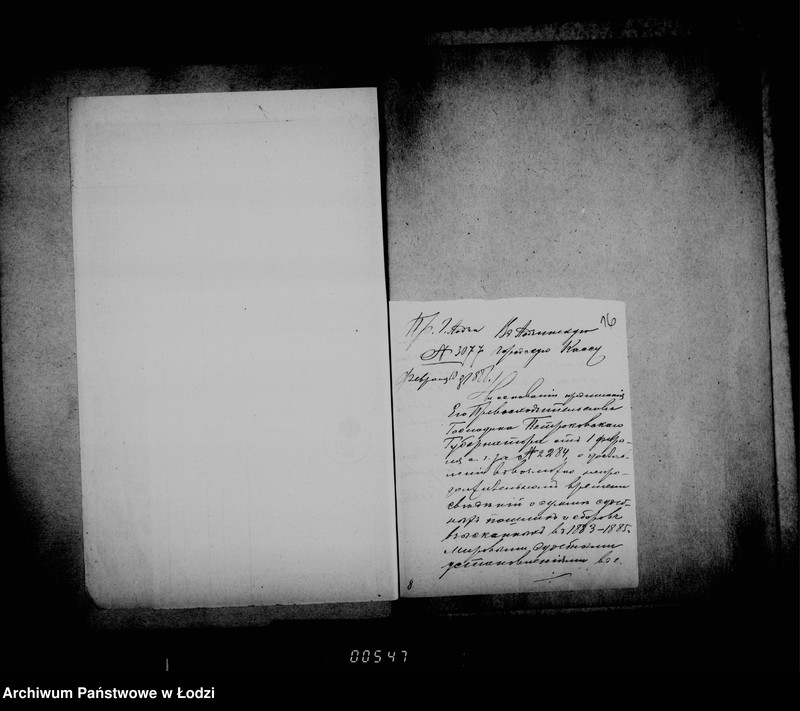 16
Пр. г. Лодзи Въ Лодзинскую
№ 3077 городскую Кассу
Февраля 1886 г.
На основаніи предписанія
Его Превосходительства
Господина Петроковскаго
Губернатора отъ 1 февра-
ля с. г. за № 2284, о доставле-
ніи въ возможно непро-
должительномъ времени
свѣдѣній о суммѣ судеб-
ныхъ пошлинъ и сборовъ
взысканныхъ въ 1883–1885 г.
мировыми судебными
установленіями
8
00547
Archiwum Państwowe w Łodzi